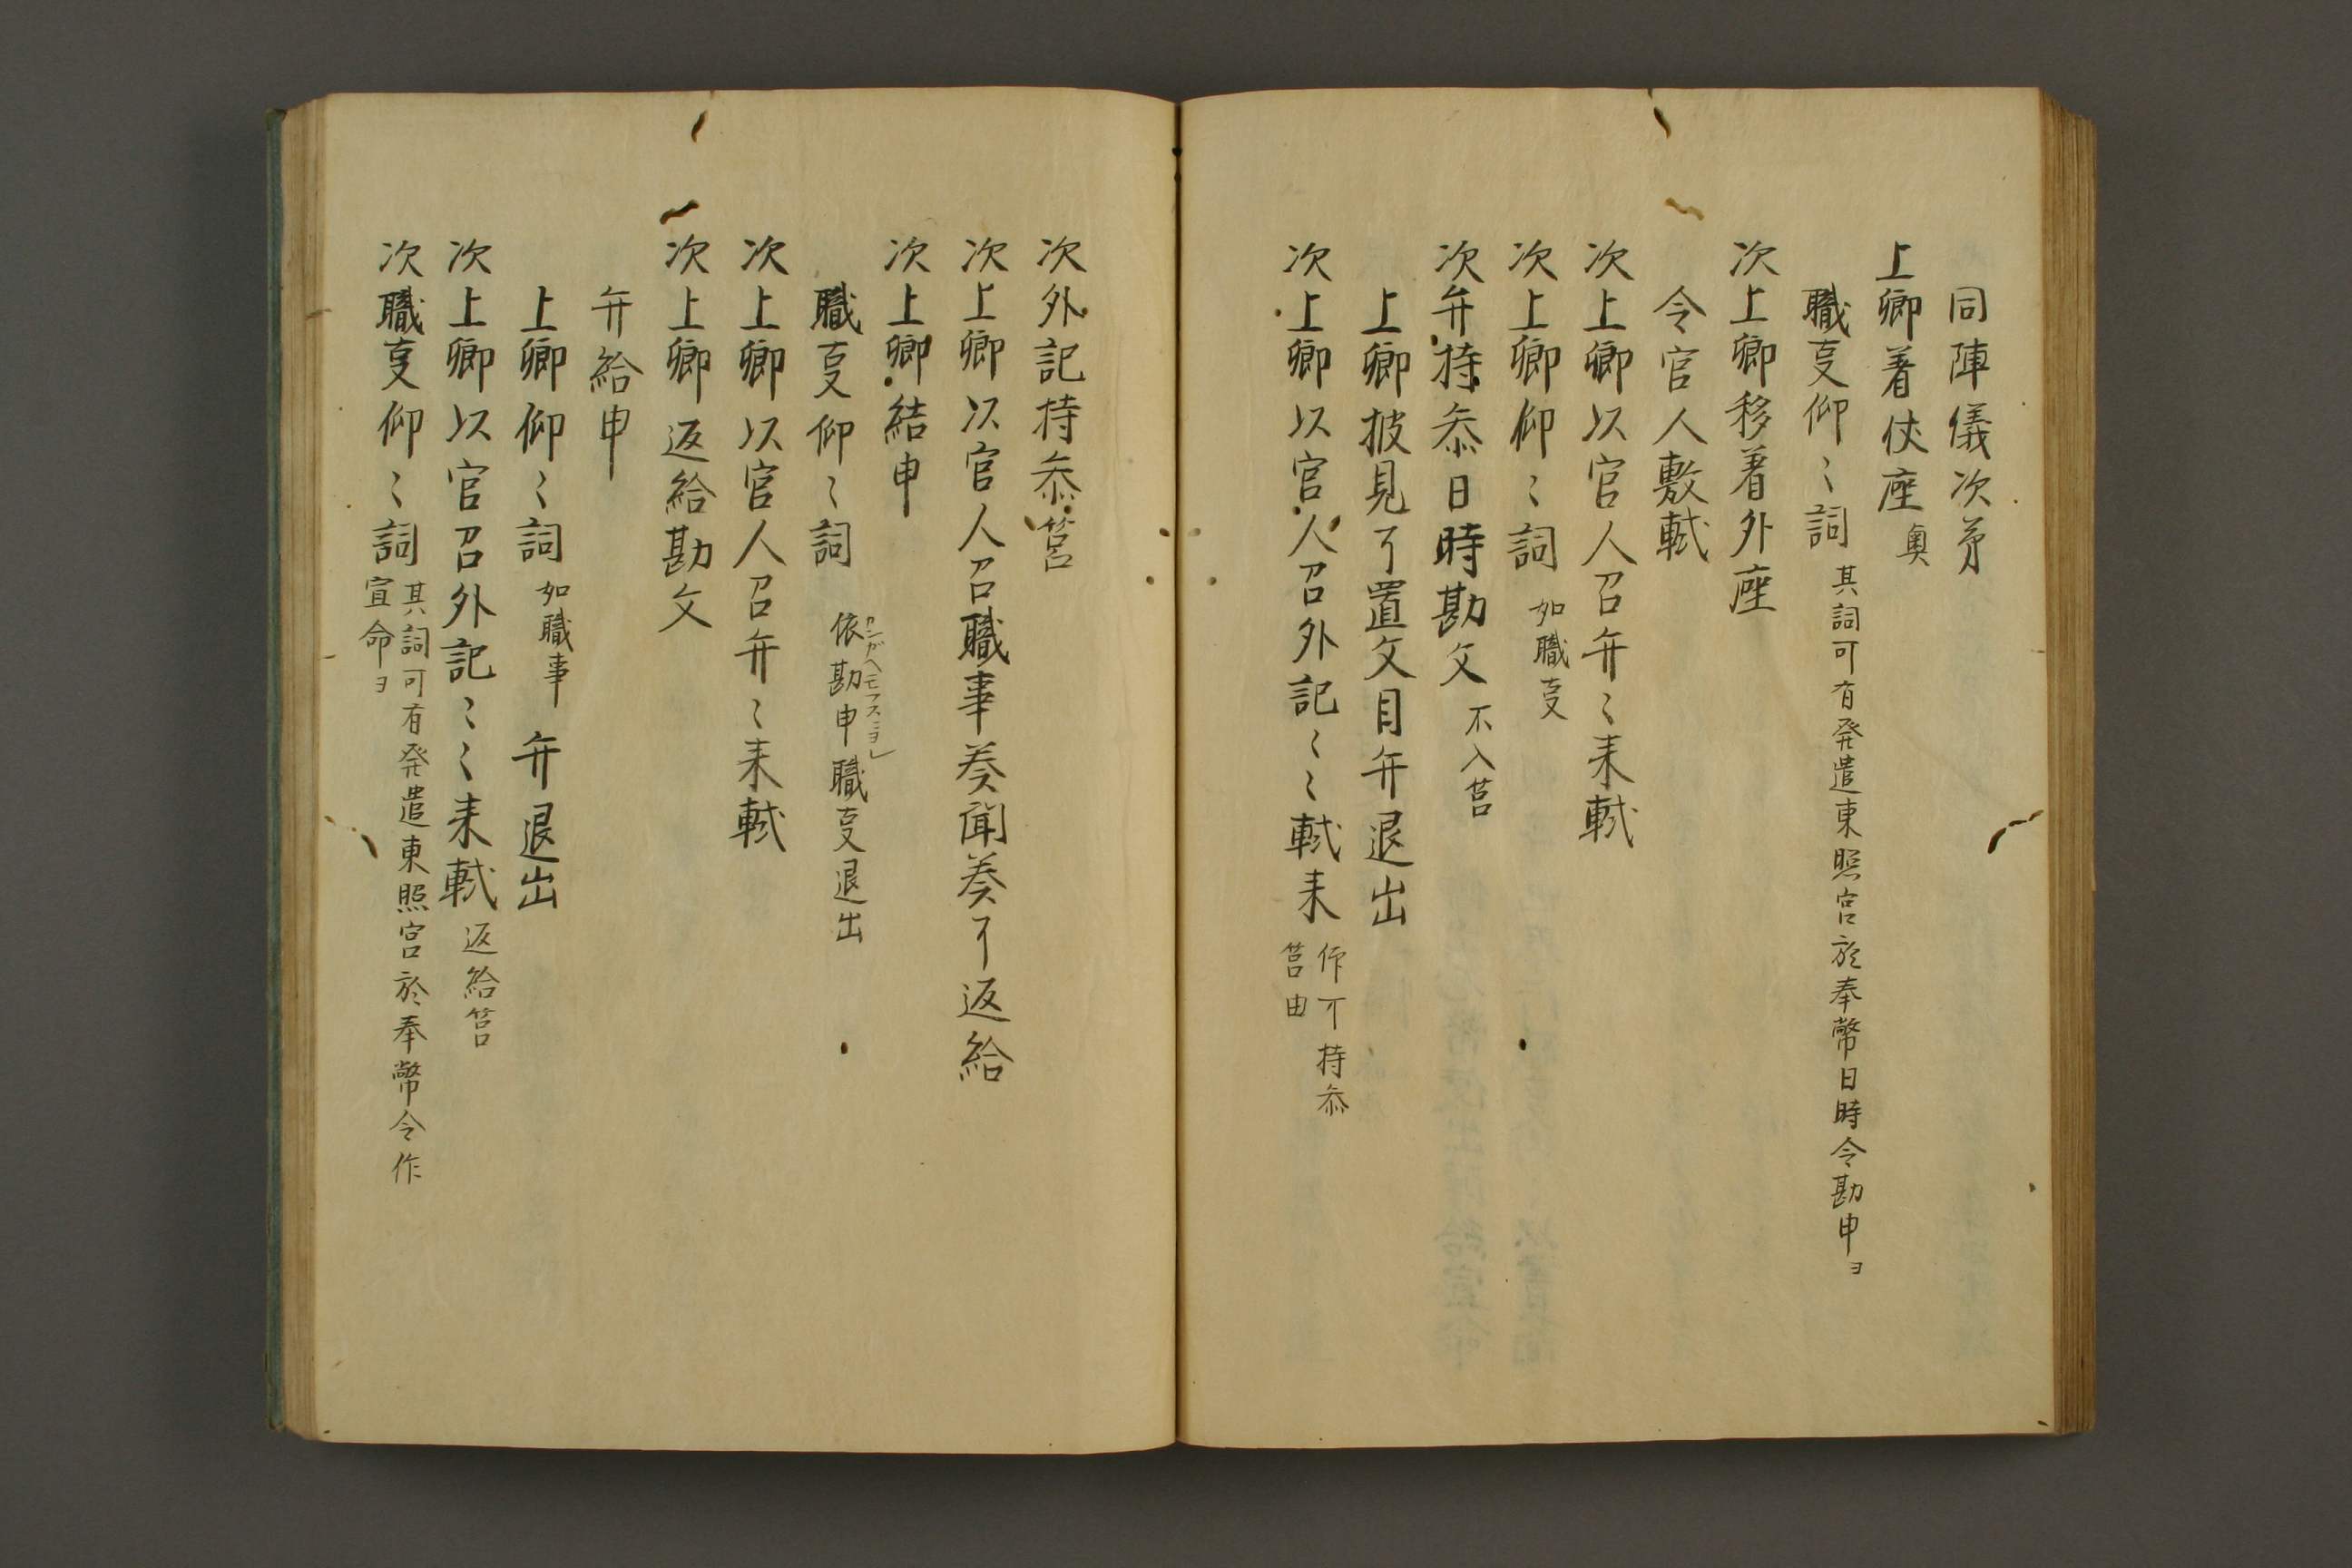 同陣儀次第
上卿着仗座奥
職㕝仰〻詞其詞可有発遣東照宮於奉幣日時令勘申ヨ
次上卿移着外座
令官人敷軾
次上卿以官人召弁〻来軾
次上卿仰〻詞如職㕝
次弁持参日時勘文不入筥
上卿披見了置文目弁退出
次上卿以官人召外記〻〻軾来仰可持参
筥由
次外記持参筥
次上卿以官人召職事奏聞奏了返給
次上卿結申
職㕝仰〻詞依勘申職㕝退出
カンガヘモフスニヨレ
次上卿以官人召弁〻来軾
次上卿返給勘文
弁給申
上卿仰〻詞如職事 弁退出
次上卿以官召外記〻〻来軾返給筥
次職㕝仰〻詞其詞可有発遣東照宮於奉幣令作
宣命ヨ